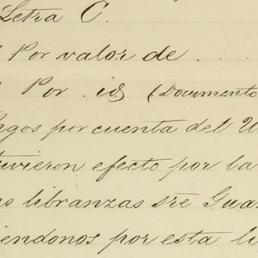 Letra C.
Por valor de ....
Por id (Documento
gos por cuenta del
tuvieron efecto por la
libranzas sre Gua
iendonos por esta li